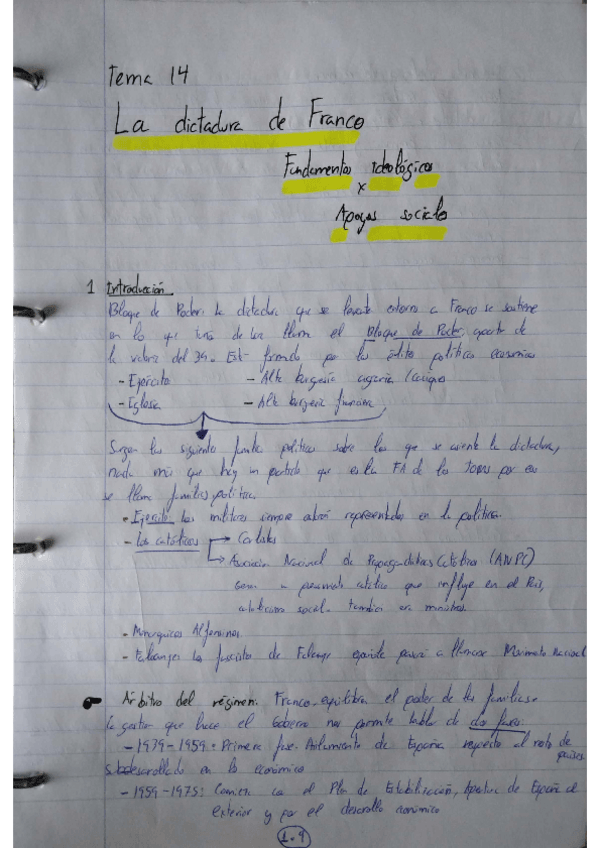 Tema 14
La dictadura de Franco
Fundamentos ideológicos
x
Apoyos sociales
1 Introducción
Bloque de Poder: la dictadura que se levanta entorno a Franco se sostiene
en lo que de Lara llama el Bloque de Poder, aparte de
la victoria del 39. Está formado por las élites políticas económicas
- Ejército - Alta burguesía agraria (
- Iglesia - Alta burguesía financiera
Surgen las siguientes familias políticas sobre las que se asienta la dictadura,
nada más que hay un partido que es la FA de las JONS por eso
se llama familias políticas.
- Ejército los militares siempre representados en la política.
- Los católicos → Carlistas
→ Asociación Nacional de Propagandistas Católicos (ANPC)
pensamiento católico que influye en el País,
social. también
- Monárquicos Alfonsinos.
- Falanges los fascistas de Falange española pasará a llamarse Movimiento Nacional
Árbitro del régimen: Franco equilibra el poder de las familias.
la gestión que hace el Gobierno nos permite hablar de dos fases:
- 1939-1959: Primera fase. Aislamiento de España respecto al resto de países.
subdesarrollado en lo económico
- 1959-1975: Comienza con el Plan de Estabilización, Apertura de España al
exterior y por el desarrollo económico
1.9